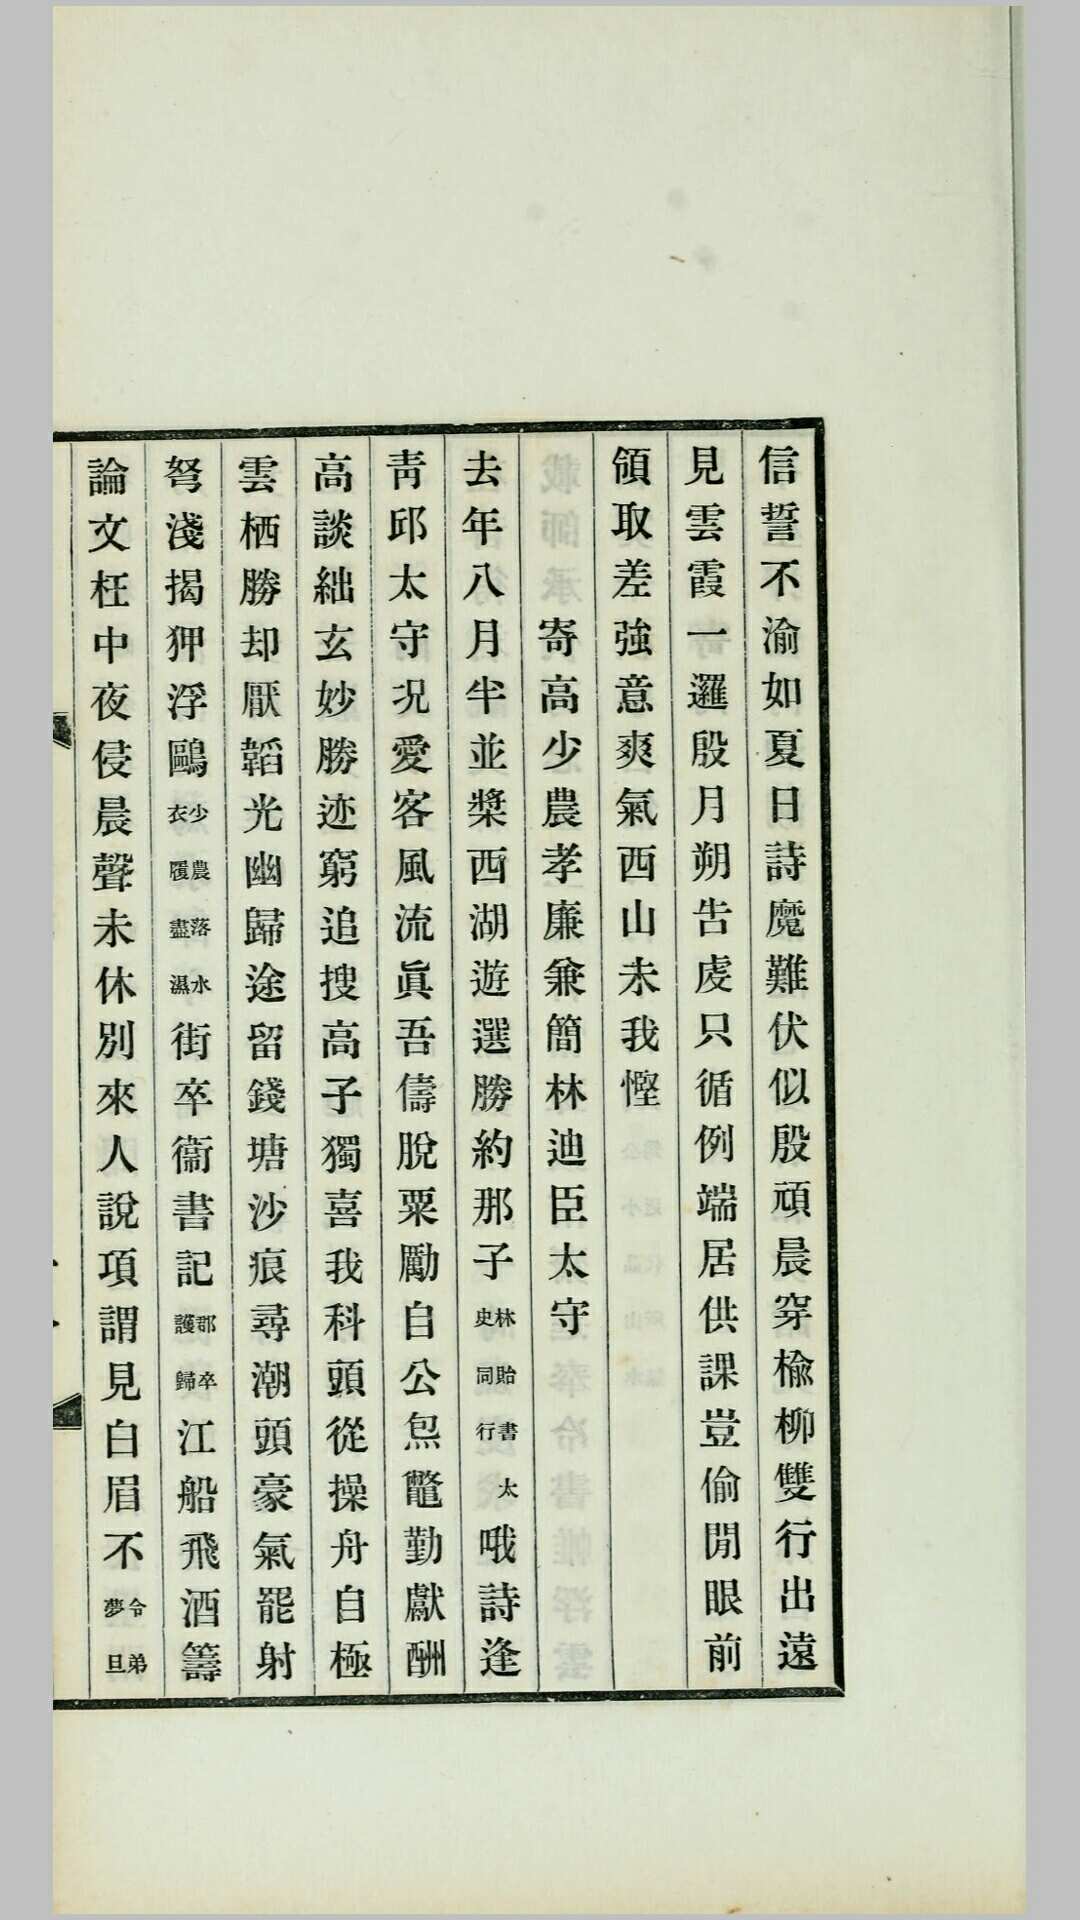 信誓不渝如夏日詩魔難伏似殷頑晨穿榆柳雙行出遠
見雲霞一邏殷月朔告虔只循例端居供課豈偷閒眼前
領取差強意爽氣西山未我慳
寄高少農孝廉兼簡林迪臣太守
去年八月半並槳西湖遊選勝約那子林貽書太史同行哦詩逢
靑邱太守況愛客風流眞吾儔脫粟勵自公炰鼈勤獻酬
高談絀玄妙勝迹窮追搜高子獨喜我科頭從操舟自極
雲栖勝却厭韜光幽歸途留錢塘沙痕尋潮頭豪氣罷射
弩淺揭狎浮鷗少農落水衣履盡濕街卒衞書記郡卒護歸江船飛酒籌
論文枉中夜侵晨聲未休別來人說項謂見白眉不令弟夢旦